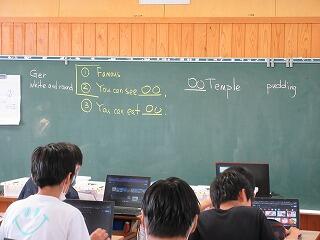 Ger
white and round
① Famous
② You can see OO.
③ You can eat OO.
OO Temple
pudding